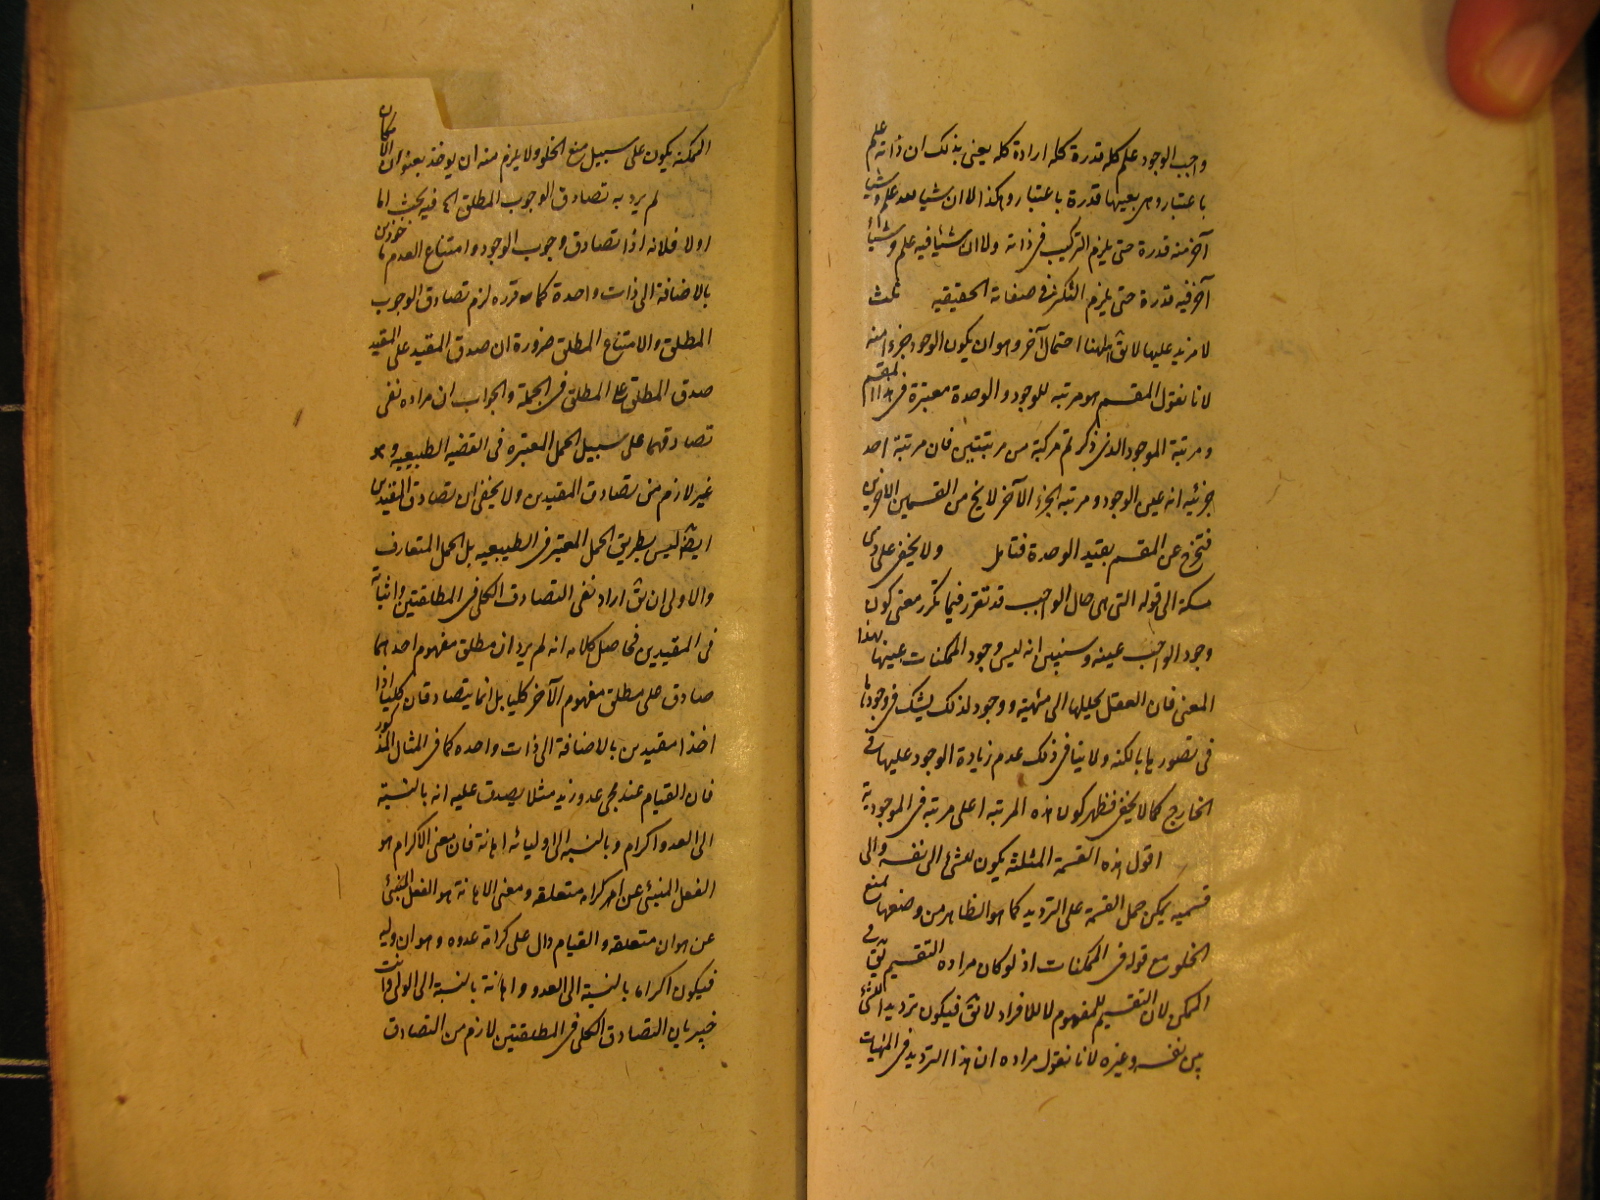 واجب الوجود علم كله قدرة كله ارادة كله يعنى بذلك ان ذاته علم
باعتبار وهى بعينها قدرة باعتبار وهكذا لا ان شيا منه علم وشيا
آخر منه قدرة حتى يلزم التركيب فى ذاته ولا ان شيئا فيه علم وشيئا
آخر فيه قدرة حتى يلزم التكثر فى صفاته الحقيقيه ثلث
لا مزيد عليها لا يق ههنا احتمال آخر وهو ان يكون الوجود جزءا منه
لانا نقول المقسم هو مرتبه للوجود والوحدة معتبرة فى المقسم
ومرتبة الموجود الذى ذكرتم مركبة من مرتبتين فان مرتبة احد
جزئيه انه عين الوجود ومرتبه الجزء الآخر لا يخ من القسمين الاخرين
فتخرج عن المقسم بقيد الوحدة فتامل ولا يخفى على ذى
مسكة الى قوله التى هى حال الواجب قد تقرر فيما تكرر معنى كون
وجود الواجب عينه وسنبين انه ليس وجود الممكنات عينها بهذا
المعنى فان العقل يحللها الى مهية ووجود لذلك يشك فى وجودها
فى تصورها بالكنه ولا ينافى ذلك عدم زيادة الوجود عليها فى
الخارج كما لا يخفى فظهر كون هذه المرتبه اعلى مرتبه فى الموجودية
اقول هذه القسمة المثلثة يكون للشئ الى نفسه والى
قسميه يمكن حمل القسمة على الترديد كما هو الظاهر من وضعها لمنع
الخلو مع قوله فى الممكنات اذ لو كان مراده التقسيم يق فى
الممكن لان التقسيم للمفهوم لا للافراد لا يق فيكون ترديد الشئ
بين نفسه وغيره لانا نقول مراده ان هذا الترديد فى المهيات
الممكنه يكون على سبيل منع الخلو ولا يلزم منه ان يوخذ بعنوان الامكان
لم يرد به تصادق الوجوب المطلق الخ فيه بحث اما
اولا فلانه اذا تصادق وجوب الوجود وامتناع العدم ماخوذين
بالاضافة الى ذات واحدة كما قرره لزم تصادق الوجوب
المطلق والامتناع المطلق ضرورة ان صدق المقيد على المقيد
صدق المطلق على المطلق فى الجملة والجواب ان مراده نفى
تصادقهما على سبيل الحمل المعتبره فى القضيه الطبيعيه وهو
غير لازم من تصادق المقيدين ولا يخفى ان تصادق المقيدين
ايضا ليس بطريق الحمل المعتبر فى الطبيعيه بل الحمل المتعارف
والاولى ان يق اراد نفى التصادق الكلى فى المطلقتين واثباته
فى المقيدين فحاصل كلامه انه لم يرد ان مطلق مفهوم احدهما
صادق على مطلق مفهوم الآخر كليا بل انما يتصادقان كليا اذا
اخذا مقيدين بالاضافة الى ذات واحده كما فى المثال المذكور
فان القيام عند مجى عدو زيد مثلا يصدق عليه انه بالنسبة
الى العدو اكرام وبالنسبه الى اوليائه اهانة فان معنى الاكرام هو
الفعل المنبئ عن متعلقه ومعنى الاهانة هو الفعل المنبئ
عن هوان متعلقه والقيام دال على كرامة عدوه وهوان وليه
فيكون اكراما بالنسبة الى العدو واهانة بالنسبة الى الولى وانت
خبير بان التصادق الكلى فى المطلقتين لازم من التصادق